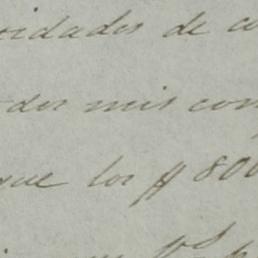 oidades de co
der mis com
que los $ 800